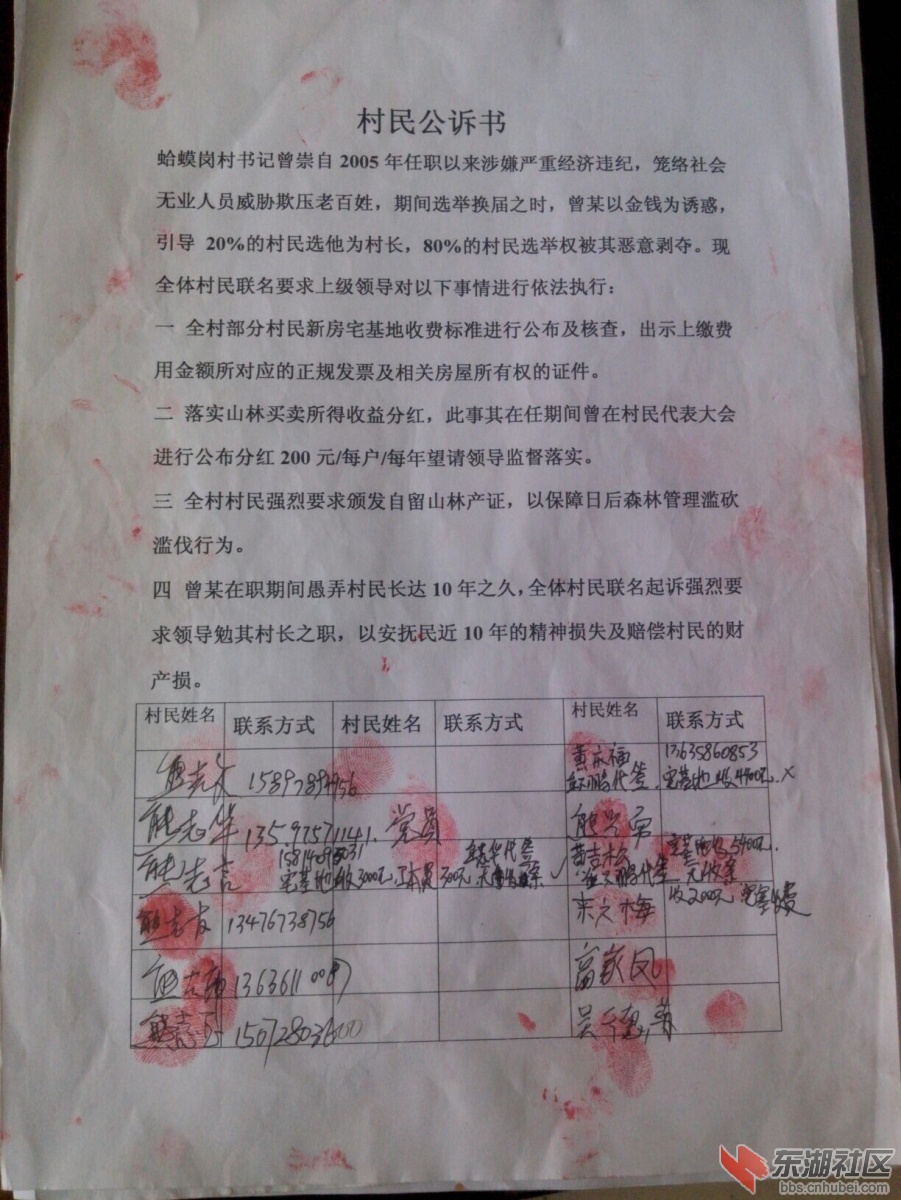 村民公诉书
蛤蟆岗村书记曾崇自 2005 年任职以来涉嫌严重经济违纪，笼络社会
无业人员威胁欺压老百姓，期间选举换届之时，曾某以金钱为诱惑，
引导 20%的村民选他为村长，80%的村民选举权被其恶意剥夺。现
全体村民联名要求上级领导对以下事情进行依法执行：
一 全村部分村民新房宅基地收费标准进行公布及核查，出示上缴费
用金额所对应的正规发票及相关房屋所有权的证件。
二 落实山林买卖所得收益分红，此事其在任期间曾在村民代表大会
进行公布分红 200 元/每户/每年望请领导监督落实。
三 全村村民强烈要求颁发自留山林产证，以保障日后森林管理滥砍
滥伐行为。
四 曾某在职期间愚弄村民长达 10 年之久，全体村民联名起诉强烈要
求领导勉其村长之职，以安抚民近 10 年的精神损失及赔偿村民的财
产损。
村民姓名 联系方式 村民姓名 联系方式 村民姓名 联系方式
黄永福 13635860853
代签 宅基地 收4400元 ×
熊志华 13597571141. 党员
熊志言 宅基地收3000元,工本费300元 代签 黄吉松 代签 宅基地收5400元. 无收条
13476738756 收2000元
东湖社区
bbs.cnhubei.com